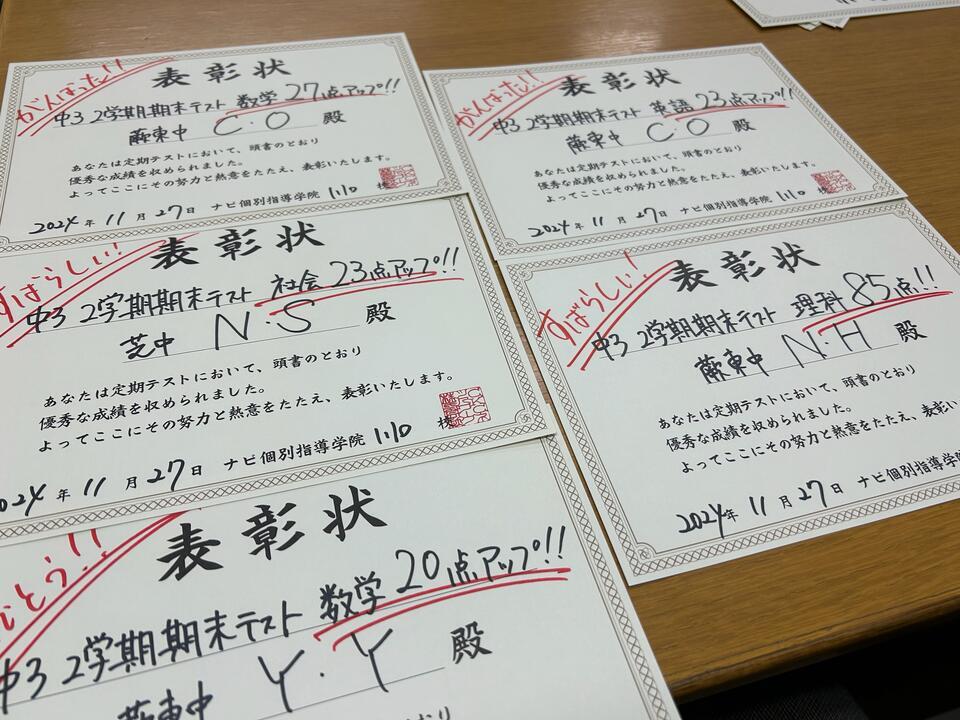 がんばった!!
表彰状
中3 2学期期末テスト 数学 27点アップ!!
蕨東中 C.O 殿
あなたは定期テストにおいて、頭書のとおり
優秀な成績を収められました。
よってここにその努力と熱意をたたえ、表彰いたします。
2024年 11月 27日 ナビ個別指導学院
がんばった!!
表彰状
中3 2学期期末テスト 英語 23点アップ!!
蕨東中 C.O 殿
あなたは定期テストにおいて、頭書のとおり
優秀な成績を収められました。
よってここにその努力と熱意をたたえ、表彰いたします。
2024年 11月 27日 ナビ個別指導学院
すばらしい!
表彰状
中3 2学期期末テスト 社会 23点アップ!!
芝中 N.S 殿
あなたは定期テストにおいて、頭書のとおり
優秀な成績を収められました。
よってここにその努力と熱意をたたえ、表彰いたします。
2024年 11月 27日 ナビ個別指導学院
すばらしい!
表彰状
中3 2学期期末テスト 理科 85点!!
蕨東中 N.H 殿
あなたは定期テストにおいて、頭書のとおり
優秀な成績を収められました。
よってここにその努力と熱意をたたえ、表彰い
2024年 11月 27日 ナビ個別指導学
表彰状
中3 2学期期末テスト 数学 20点アップ!!
蕨東中 Y.Y 殿